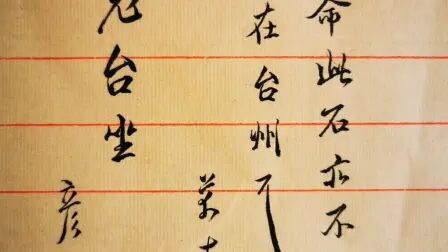 命此石亦不
在台州
台坐
彦